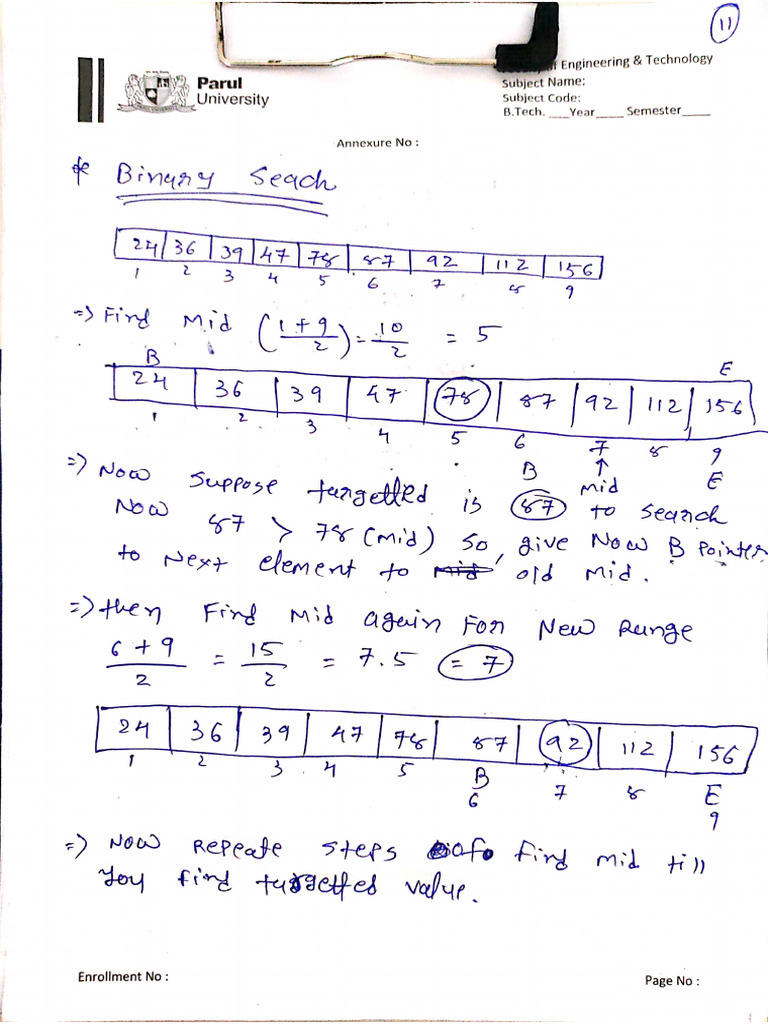 11
of Engineering & Technology
Parul
University
Subject Name:
Subject Code:
B.Tech. ___Year____ Semester____
Annexure No :
* Binary Seach
24 36 39 47 78 87 92 112 156
1 2 3 4 5 6 7 8 9
=> Find Mid (1+9/2) = 10/2 = 5
B E
24 36 39 47 78 87 92 112 156
1 2 3 4 5 6 7 8 9
B ↑ Mid E
=> Now suppose targetted is 87 to search
Now 87 > 78 (Mid) so, give Now B pointer
to Next element to Mid old Mid.
=> then Find Mid again For New Range
6+9/2 = 15/2 = 7.5 = 7
24 36 39 47 78 87 92 112 156
1 2 3 4 5 B 6 7 8 E 9
=> Now Repeate steps of find mid till
you find targetted value.
Enrollment No :
Page No :